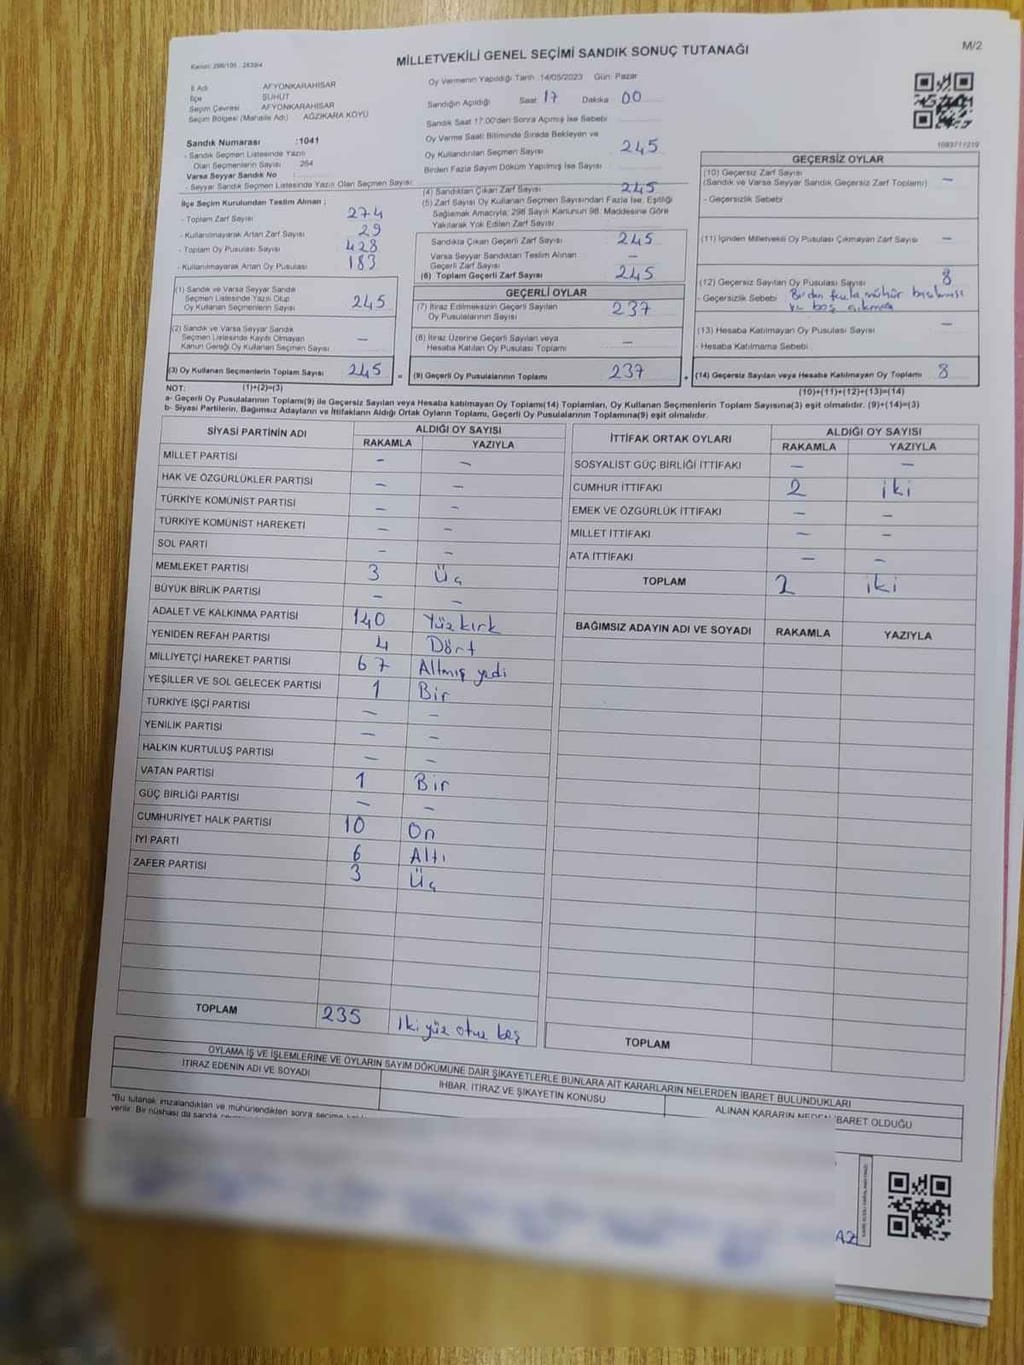 MİLLETVEKİLİ GENEL SEÇİMİ SANDIK SONUÇ TUTANAĞI
M/2
İl Adı AFYONKARAHİSAR
İlçe ŞUHUT
Seçim Çevresi AFYONKARAHİSAR
Seçim Bölgesi (Mahalle Adı) AĞZIKARA KÖYÜ
Sandık Numarası :1041
- Sandık Seçmen Listesinde Yazılı
Olan Seçmenlerin Sayısı 264
Varsa Seyyar Sandık No
- Seyyar Sandık Seçmen Listesinde Yazılı Olan Seçmen Sayısı
Oy Vermenin Yapıldığı Tarih :14/05/2023 Gün: Pazar
Sandığın Açıldığı Saat 17 Dakika 00
Sandık Saat 17:00'den Sonra Açılmış İse Sebebi
Oy Verme Saati Bitiminde Sırada Bekleyen ve
Oy Kullandırılan Seçmen Sayısı 245
Birden Fazla Sayım Döküm Yapılmış İse Sayısı
İlçe Seçim Kurulundan Teslim Alınan ;
- Toplam Zarf Sayısı 274
- Kullanılmayarak Artan Zarf Sayısı 29
- Toplam Oy Pusulası Sayısı 428
- Kullanılmayarak Artan Oy Pusulası 183
(1) Sandık ve Varsa Seyyar Sandık
Seçmen Listesinde Yazılı Olup
Oy Kullanan Seçmenlerin Sayısı 245
(2) Sandık ve Varsa Seyyar Sandık
Seçmen Listesinde Kayıtlı Olmayan
Kanun Gereği Oy Kullanan Seçmen Sayısı –
(3) Oy Kullanan Seçmenlerin Toplam Sayısı 245 =
(4) Sandıktan Çıkan Zarf Sayısı 245
(5) Zarf Sayısı Oy Kullanan Seçmen Sayısından Fazla İse, Eşitliği
Sağlamak Amacıyla, 298 Sayılı Kanunun 98. Maddesine Göre
Yakılarak Yok Edilen Zarf Sayısı
Sandıkta Çıkan Geçerli Zarf Sayısı 245
Varsa Seyyar Sandıktan Teslim Alınan
Geçerli Zarf Sayısı –
(6) Toplam Geçerli Zarf Sayısı 245
GEÇERLİ OYLAR
(7) İtiraz Edilmeksizin Geçerli Sayılan
Oy Pusulalarının Sayısı 237
(8) İtiraz Üzerine Geçerli Sayılan veya
Hesaba Katılan Oy Pusulası Toplamı –
(9) Geçerli Oy Pusulalarının Toplamı 237 +
GEÇERSİZ OYLAR
(10) Geçersiz Zarf Sayısı
(Sandık ve Varsa Seyyar Sandık Geçersiz Zarf Toplamı) –
- Geçersizlik Sebebi
(11) İçinden Milletvekili Oy Pusulası Çıkmayan Zarf Sayısı –
(12) Geçersiz Sayılan Oy Pusulası Sayısı 8
- Geçersizlik Sebebi Birden fazla mühür basılması
ve boş çıkması
(13) Hesaba Katılmayan Oy Pusulası Sayısı –
- Hesaba Katılmama Sebebi
(14) Geçersiz Sayılan veya Hesaba Katılmayan Oy Toplamı 8
NOT: (1)+(2)=(3)
(10)+(11)+(12)+(13)=(14)
a- Geçerli Oy Pusulalarının Toplamı(9) ile Geçersiz Sayılan veya Hesaba katılmayan Oy Toplamı(14) Toplamları, Oy Kullanan Seçmenlerin Toplam Sayısına(3) eşit olmalıdır. (9)+(14)=(3)
b- Siyasi Partilerin, Bağımsız Adayların ve İttifakların Aldığı Ortak Oyların Toplamı, Geçerli Oy Pusulalarının Toplamına(9) eşit olmalıdır.
SİYASİ PARTİNİN ADI ALDIĞI OY SAYISI
RAKAMLA YAZIYLA
MİLLET PARTİSİ – –
HAK VE ÖZGÜRLÜKLER PARTİSİ – –
TÜRKİYE KOMÜNİST PARTİSİ – –
TÜRKİYE KOMÜNİST HAREKETİ – –
SOL PARTİ – –
MEMLEKET PARTİSİ 3 Üç
BÜYÜK BİRLİK PARTİSİ – –
ADALET VE KALKINMA PARTİSİ 140 Yüz kırk
YENİDEN REFAH PARTİSİ 4 Dört
MİLLİYETÇİ HAREKET PARTİSİ 67 Altmış yedi
YEŞİLLER VE SOL GELECEK PARTİSİ 1 Bir
TÜRKİYE İŞÇİ PARTİSİ – –
YENİLİK PARTİSİ – –
HALKIN KURTULUŞ PARTİSİ – –
VATAN PARTİSİ 1 Bir
GÜÇ BİRLİĞİ PARTİSİ – –
CUMHURİYET HALK PARTİSİ 10 On
İYİ PARTİ 6 Altı
ZAFER PARTİSİ 3 Üç
TOPLAM 235 İki yüz otuz beş
İTTİFAK ORTAK OYLARI ALDIĞI OY SAYISI
RAKAMLA YAZIYLA
SOSYALİST GÜÇ BİRLİĞİ İTTİFAKI – –
CUMHUR İTTİFAKI 2 iki
EMEK VE ÖZGÜRLÜK İTTİFAKI – –
MİLLET İTTİFAKI – –
ATA İTTİFAKI – –
TOPLAM 2 iki
BAĞIMSIZ ADAYIN ADI VE SOYADI RAKAMLA YAZIYLA
TOPLAM
OYLAMA İŞ VE İŞLEMLERİNE VE OYLARIN SAYIM DÖKÜMÜNE DAİR ŞİKAYETLERLE BUNLARA AİT KARARLARIN NELERDEN İBARET BULUNDUKLARI
İTİRAZ EDENİN ADI VE SOYADI İHBAR, İTİRAZ VE ŞİKAYETİN KONUSU ALINAN KARARIN NEDEN İBARET OLDUĞU
*Bu tutanak imzalandıktan ve mühürlendikten sonra
verilir. Bir nüshası da sandık
AZ